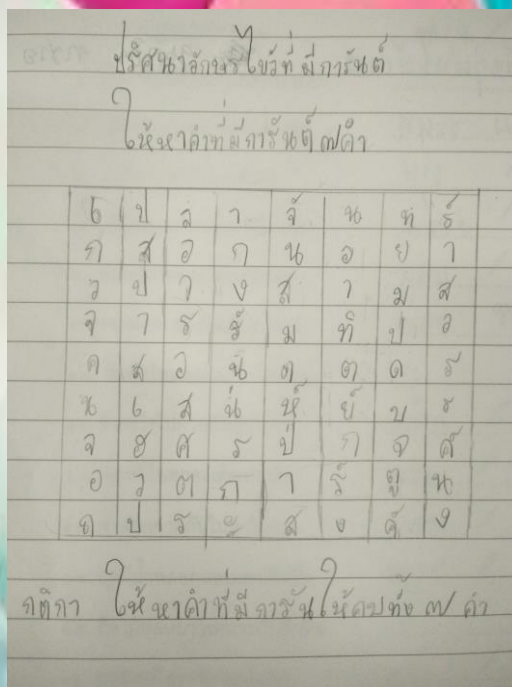 ปริศนาอักษรไขว้ที่มีการันต์
ให้หาคำที่มีการันต์ ๗ คำ
เ ป ล า จั น ท ร์
ก ส อ ก น อ ย า
ว ป ว ง ส า ม ส
จ า ร รั ม ทิ ป ว
ค ส อ นั ต ต ด ร
น เ ส น่ ห์ ย์ บ ร
จ ฮ ศ ร ป ก จ ค์
อ ว ต ก า ร์ ตู น
ถ ป ร ะ ส ง ค์ ง
กติกา ให้หาคำที่มีการันให้ครบทั้ง ๗ คำ